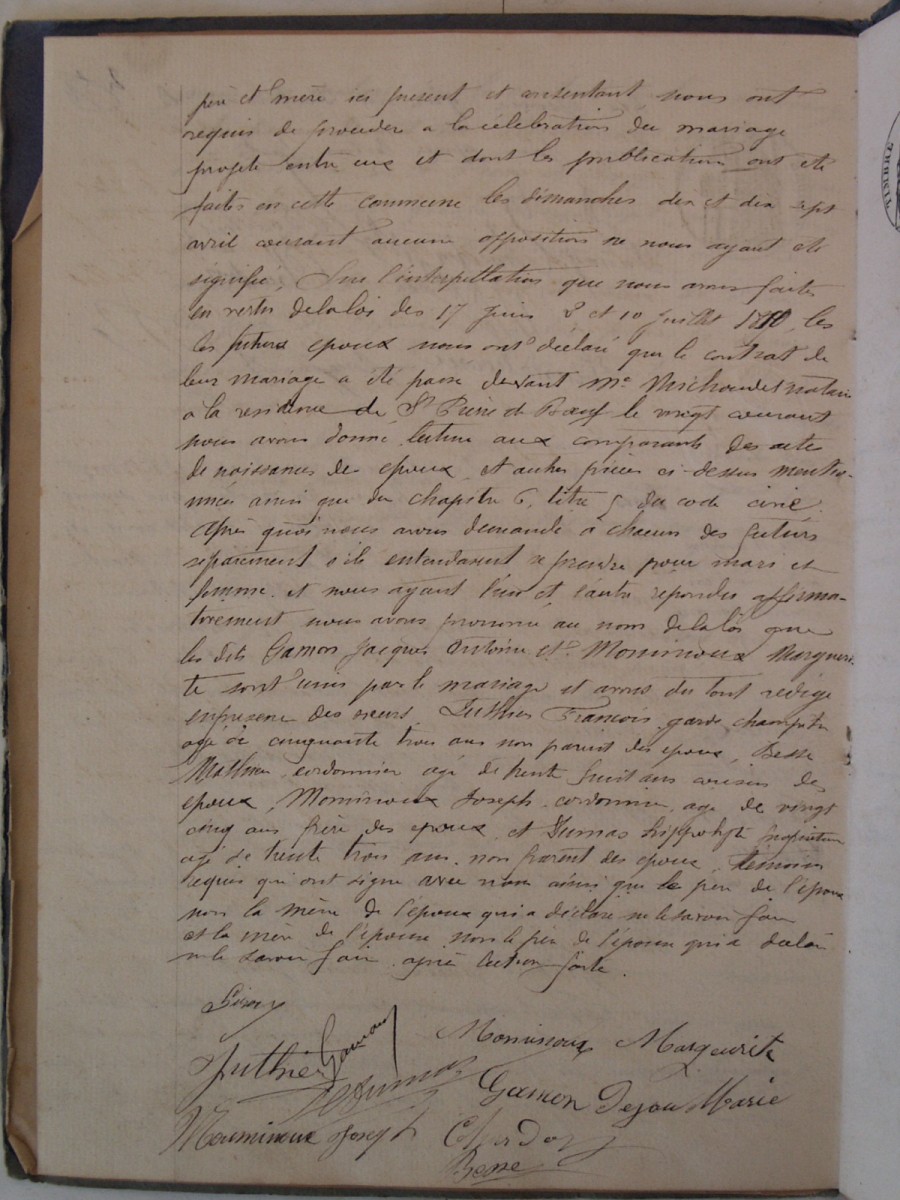 père et mère ici présent et consentant nous ont
requis de procéder a la célébration du mariage
projeté entre eux et dont les publications ont été
faites en cette commune les dimanches dix et dix sept
avril courant aucune opposition ne nous ayant été
signifié, Sur l'interpellation que nous avons faites
en vertu de la loi des 17 juin 2 et 10 juillet les
les futurs epoux nous ont déclaré que le contrat de
leur mariage a été passé devant Me notaire
a la residence de St Pierre de Bœuf le vingt courant
nous avons donné lecture aux comparants des actes
de naissances des epoux, et autres pièces ci-dessus mentio-
nnées ainsi que du chapitre 6, titre 5 du code civil.
Après quoi nous avons demandé à chacun des futurs
séparément s'ils entendaient se prendre pour mari et
femme. et nous ayant l'un et l'autre repondu affirma-
tivement nous avons prononcé au nom de la loi que
les dits Gamon Jacques Antoine et Mominoux Margueri-
te sont unis par le mariage et avons du tout rédigé
en présence des sieurs Juthier François garde champêtre
agé de cinquante trois ans non parent des epoux, Besse
Mathieu, cordonnier agé de trente huit ans voisin des
epoux, Mominoux Joseph cordonnier, agé de vingt
cinq ans frère des epoux, et Dumas hippolyte propriétaire
agé de trente trois ans, non parent des epoux, témoins
requis qui ont signé avec nous ainsi que le père de l'époux
non la mère de l'époux qui a déclaré ne le savoir faire
et la mère de l'épouse non le père de l'épouse qui a déclaré
ne le savoir faire. après lecture faite.
Mominoux Marguerite
Juthier Gamon
Dumas
Gamon Dejou Marie
Mouminoux Joseph
Besse
TIMBRE